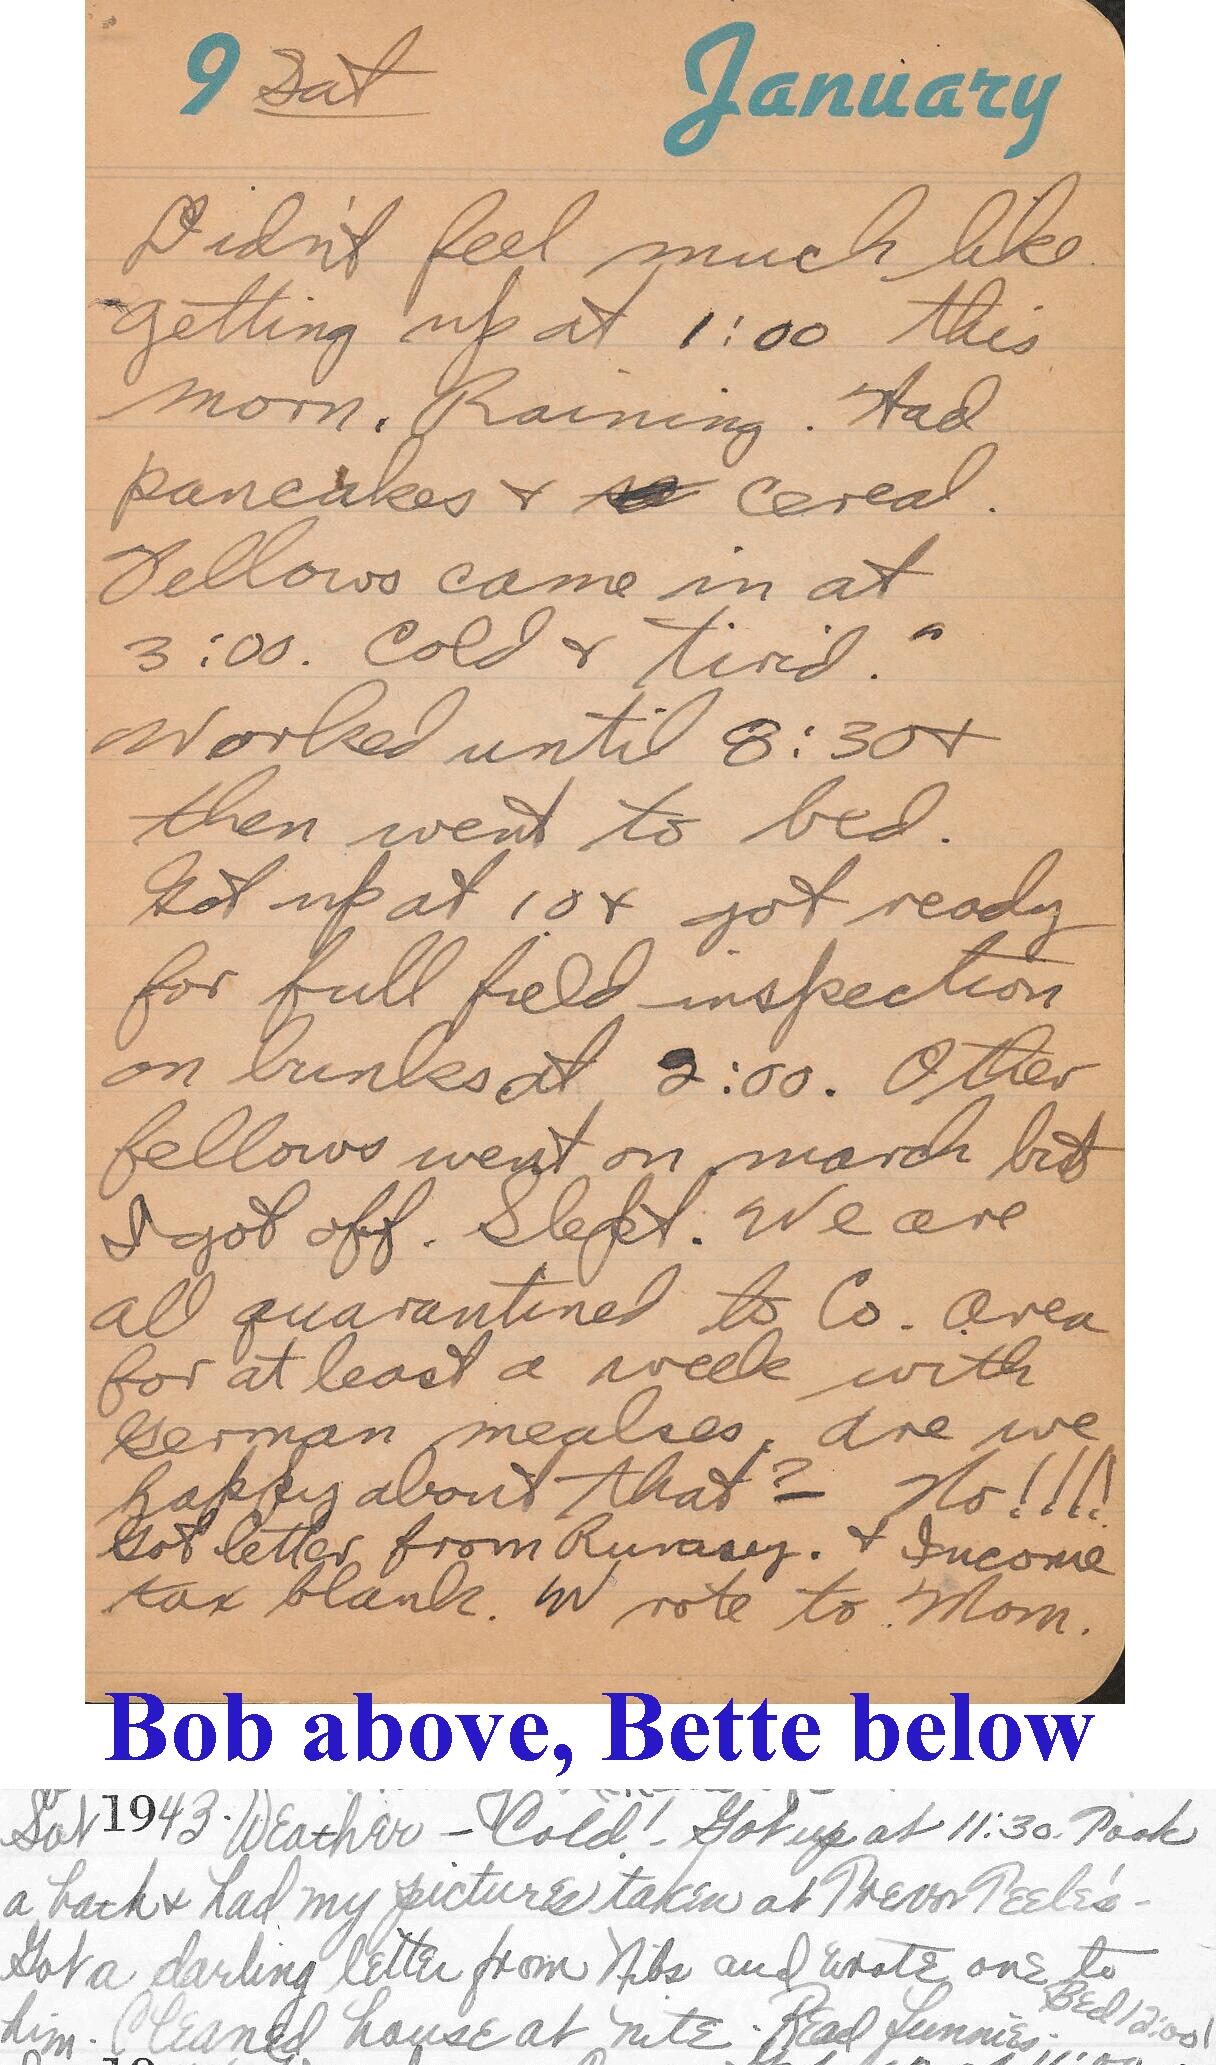 9 Sat January
Didn't feel much like
getting up at 1:00 this
morn. Raining. Had
pancakes & cereal.
Fellows came in at
3:00. Cold & tirid."
Worked until 8:30 &
then went to bed.
Got up at 10 & got ready
for full field inspection
on bunks at 2:00. Other
fellows went on march but
I got off. Slept. We are
all quarantined to Co. area
for at least a week with
German mealses. Are we
happy about that? No!!!!
Got letter from & Income
tax blank. Wrote to Mom.
Bob above, Bette below
Sat 1943. Weather - Cold! Got up at 11:30. Took
a bath & had my pictures taken at Trevor Teele's -
Got a darling letter from Nibs and wrote one to
him. Cleaned house at nite. Read funnies. Bed 12:00!